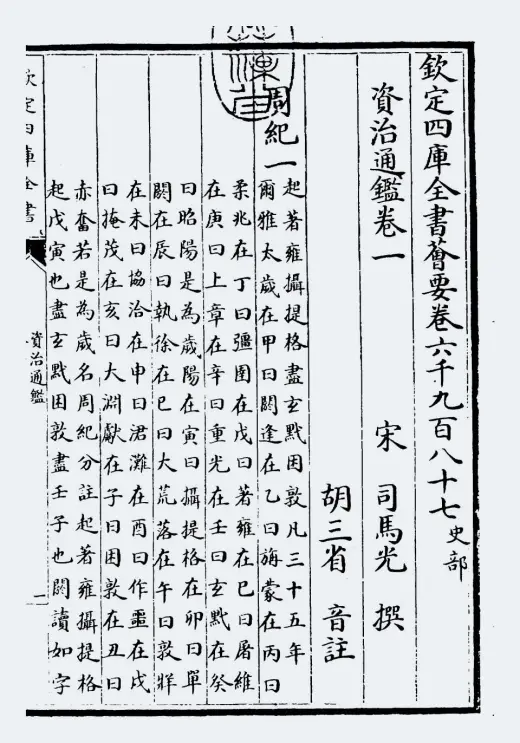 欽定四庫全書薈要卷六千九百八十七 史部
資治通鑑卷一
宋 司馬光 撰
胡三省 音註
周紀一
起著雍攝提格盡玄黓困敦凡三十五年
爾雅太歲在甲曰閼逢在乙曰旃蒙在丙曰
柔兆在丁曰彊圉在戊曰著雍在已曰屠維
在庚曰上章在辛曰重光在壬曰玄黓在癸
曰昭陽是為歲陽在寅曰攝提格在卯曰單
閼在辰曰執徐在巳曰大荒落在午曰敦牂
在未曰協洽在申曰涒灘在酉曰作噩在戌
曰掩茂在亥曰大淵獻在子曰困敦在丑曰
赤奮若是為歲名周紀分註起著雍攝提格
起戊寅也盡玄黓困敦盡壬子也閼讀如字
欽定四庫全書
資治通鑑